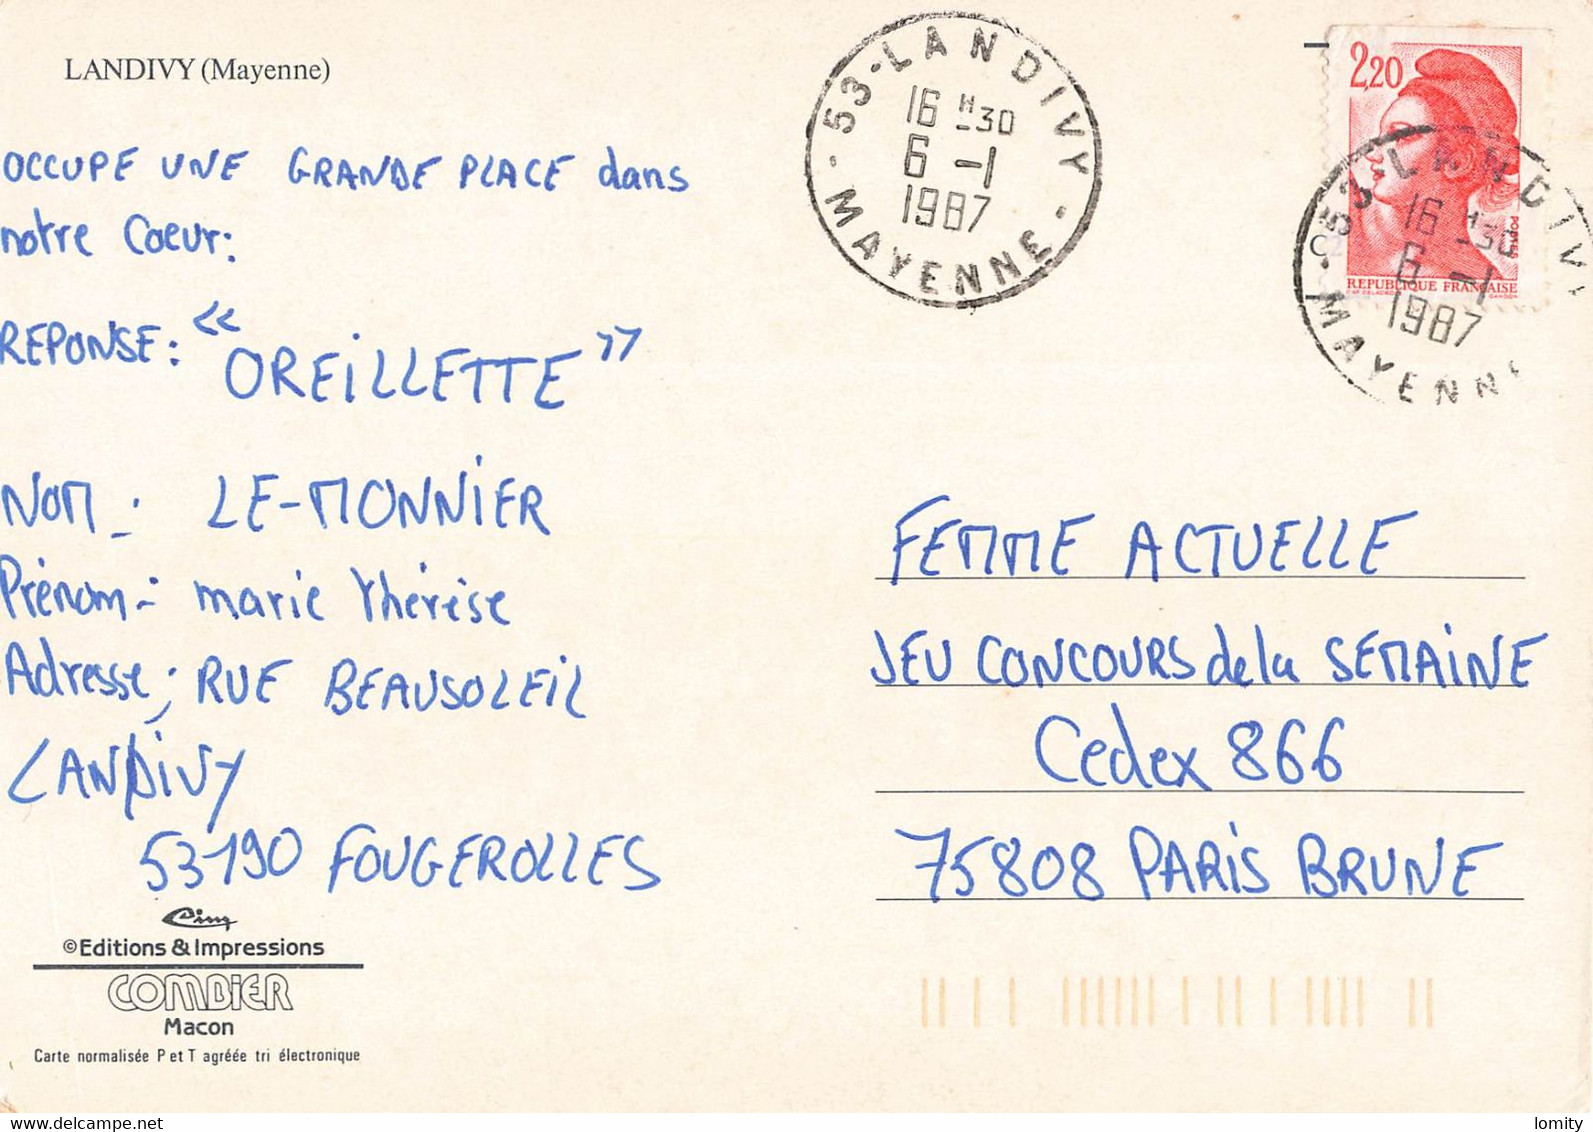 LANDIVY (Mayenne)
OCCUPE UNE GRANDE PLACE dans
notre Coeur:
REPONSE: "OREiLLETTE"
NOM : LE-MONNiER
Prénom : marie thérèse
Adresse ; RUE BEAUSOLEiL
LANDiVY
53190 FOUGEROLLES
Cim
©Editions & Impressions
COMBIER
Macon
Carte normalisée P et T agréée tri électronique
53-LANDIVY
16 H30
6 -1
1987
- MAYENNE -
2,20
POSTES
REPUBLIQUE FRANÇAISE
53-LANDIVY
16 H30
6 -1
1987
MAYENN
FEMME ACTUELLE
JEU CONCOURS de la SEMAiNE
Cedex 866
75808 PARiS BRUNE
www.delcampe.net
lomity